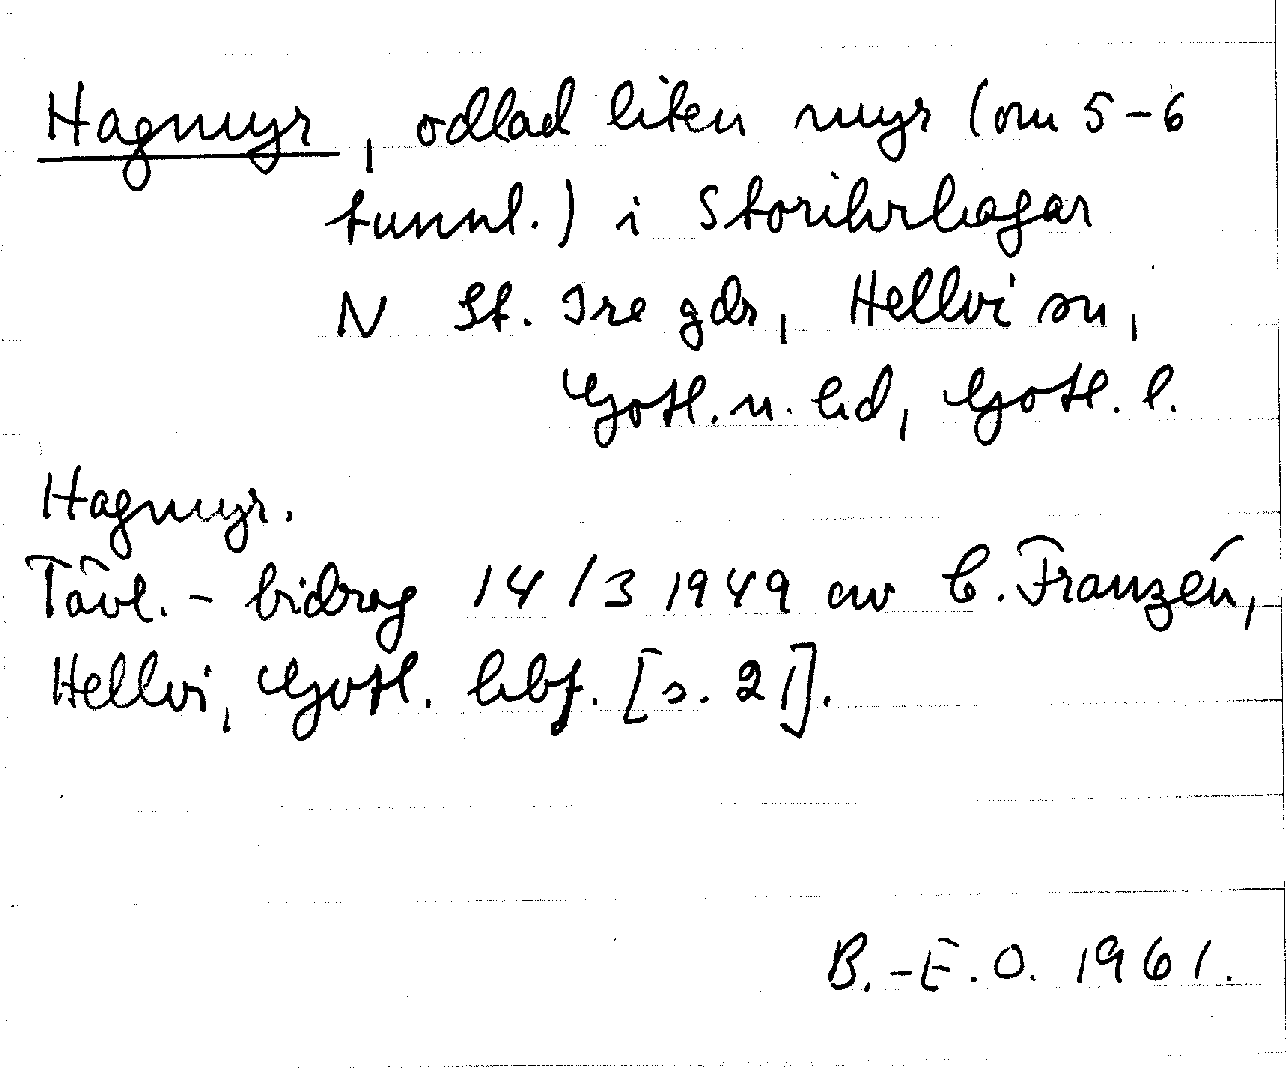 Hagmyr, odlad liten myr (om 5-6
tunnl.) i Storihrhagar
N St. Ire gdr, Hellvi sn,
Gotl. n. hd, Gotl. l.
Hagmyr.
Tävl. - bidrag 14/3 1949 av C. Franzén,
Hellvi, Gotl. hbf. [s. 21].
B.-E.O. 1961.